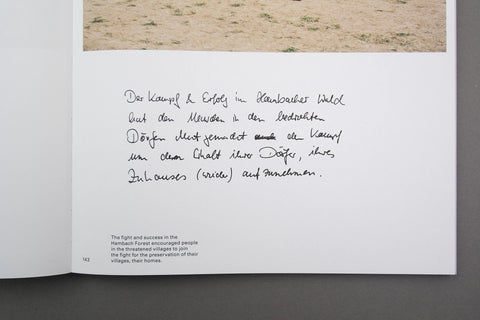 Der Kampf & Erfolg im Hambacher Wald
hat den Menschen in den bedrohten
Dörfern Mut gemacht den Kampf
um den Erhalt ihrer Dörfer, ihres
Zuhauses (wieder) aufzunehmen.
The fight and success in the
Hambach Forest encouraged people
in the threatened villages to join
the fight for the preservation of their
villages, their homes.
143